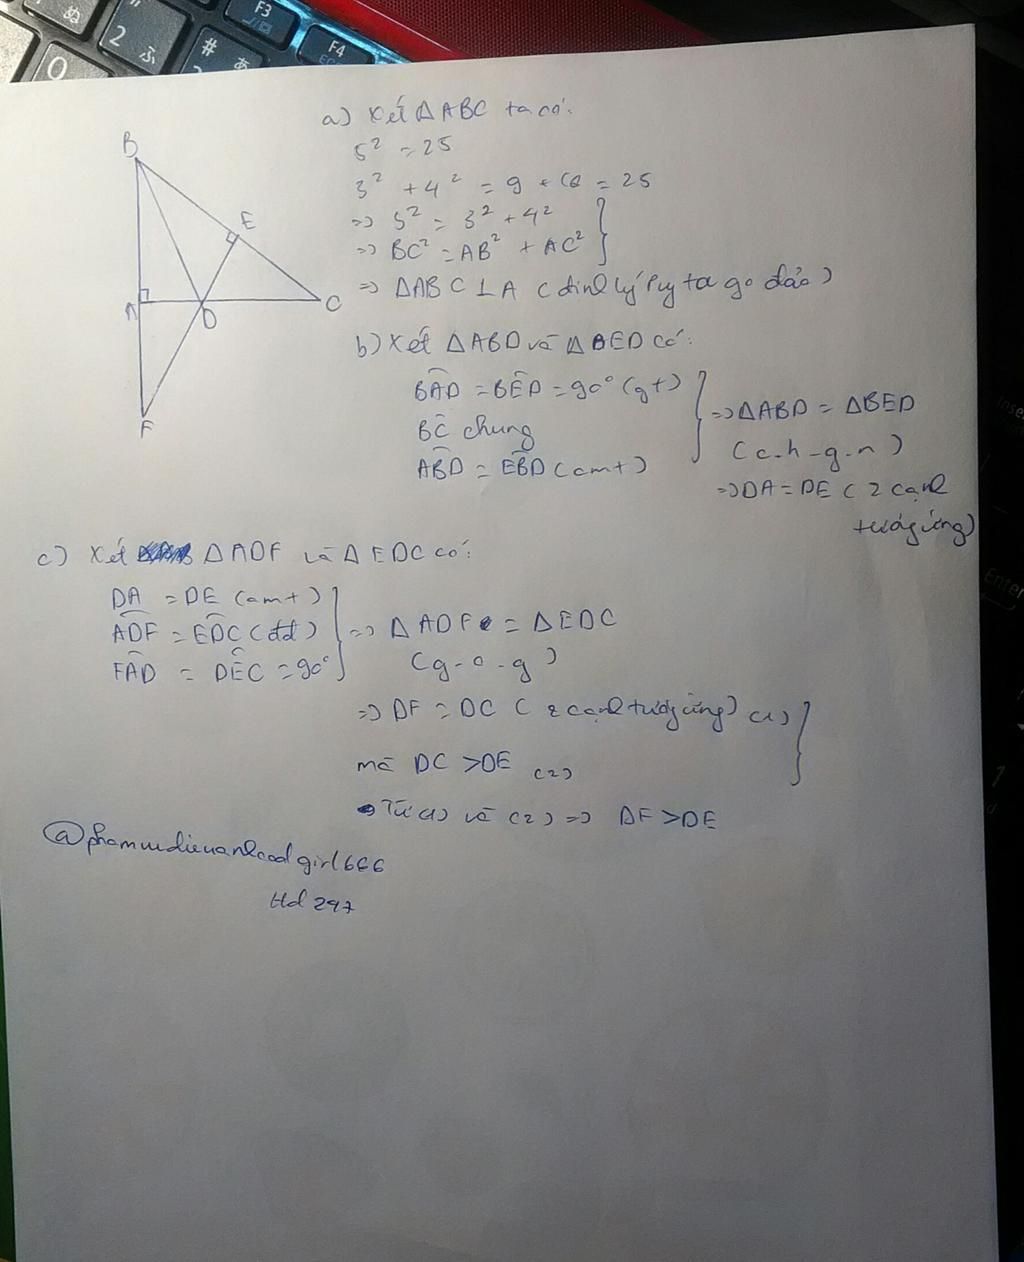 F3
F4
2 ふ
#
B
E
A
D
C
F
a) Xét ΔABC ta có:
5² = 25
3² + 4² = 9 + 16 = 25
=> 5² = 3² + 4²
=> BC² = AB² + AC²
=> ΔABC ⊥ A (định lý Py ta go đảo)
b) Xét ΔABD và ΔBED có:
BÂD = BÊD = 90° (gt)
BC chung
ABD = EBD (cmt)
=> ΔABD = ΔBED
(c.h-g.n)
=> DA = DE (2 cạnh
tương ứng)
c) Xét ΔADF và ΔEDC có:
DA = DE (cmt)
ADF = EDC (đđ)
FAD = DEC = 90°
=> ΔADF = ΔEDC
(g-c-g)
=> DF = DC (2 cạnh tương ứng) (1)
mà DC > DE (2)
Từ (1) và (2) => DF > DE
Hd 247
Enter